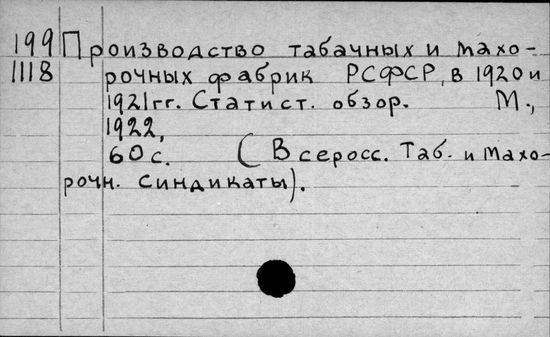 199 Производство табачных и махо-
1118 рочных фабрик РСФСР, в 1920 и
1921 гг. Статист. обзор. М.,
1922,
60 с. (Всеросс. Таб. и Махо-
рочн. Синдикаты).